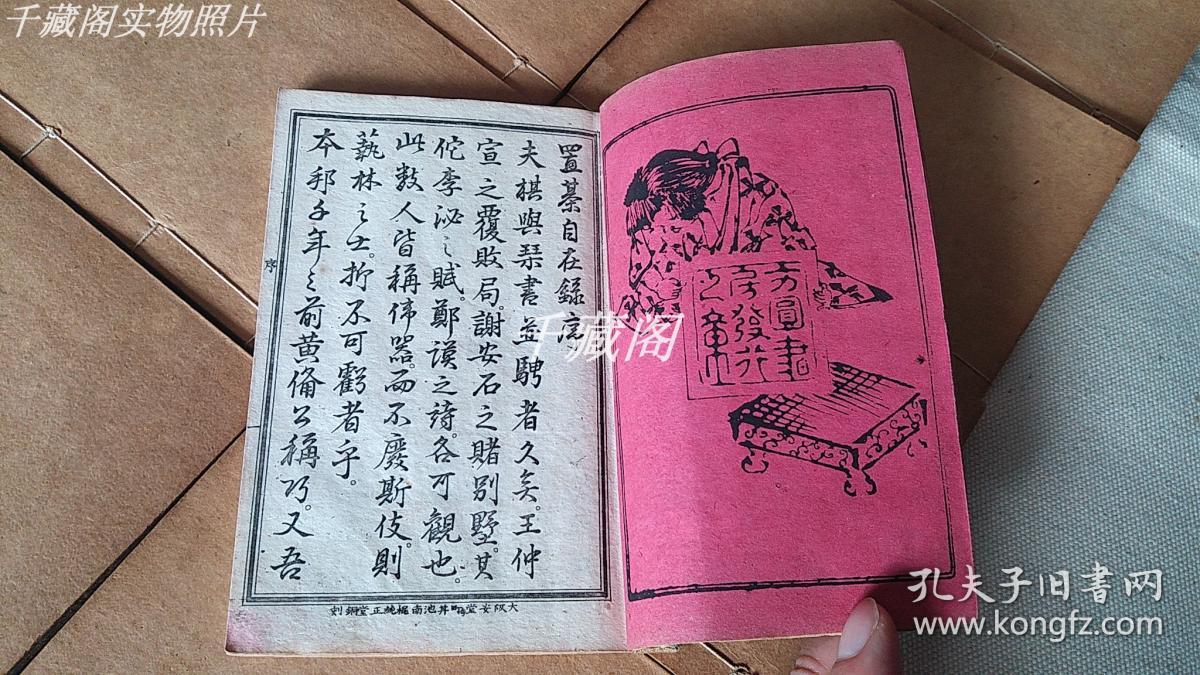 千藏阁实物照片
置棊自在録序
夫棋與琴書並騁者久矣。王仲
宣之覆敗局。謝安石之賭別墅。其
佗李泌之賦。鄭谟之詩。各可觀也。
此數人皆稱偉器。而不廢斯伎。則
藝林之士。抑不可虧者乎。
本邦千年之前黄備公稱巧。又吾
序
大阪安堂寺町丼池南梶純正堂銅刻
方圓書
之章
千藏阁
孔夫子旧书网
www.kongfz.com